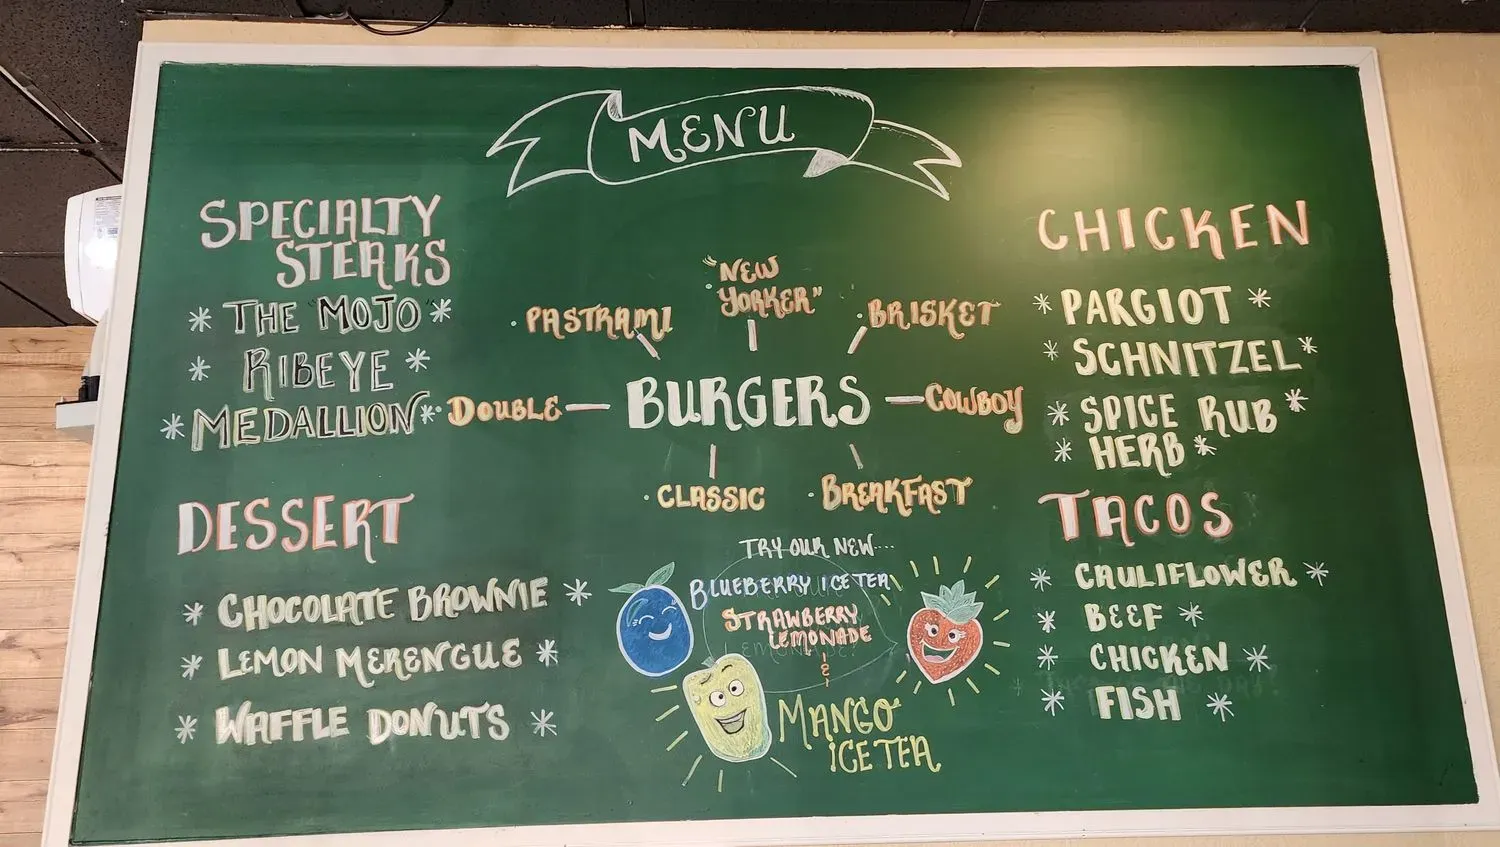 MENU
SPECIALTY
STEAKS
THE "MOJO"
RIBEYE
MEDALLION
DESSERT
CHOCOLATE BROWNIE
LEMON MERENGUE
WAFFLE DONUTS
"NEW
YORKER"
PASTRAMI
BRISKET
DOUBLE
BURGERS
COWBOY
CLASSIC
BREAKFAST
TRY OUR NEW...
BLUEBERRY ICE TEA
STRAWBERRY
LEMONADE
&
MANGO
ICE TEA
CHICKEN
PARGIOT
SCHNITZEL
SPICE RUB
HERB
TACOS
CAULIFLOWER
BEEF
CHICKEN
FISH